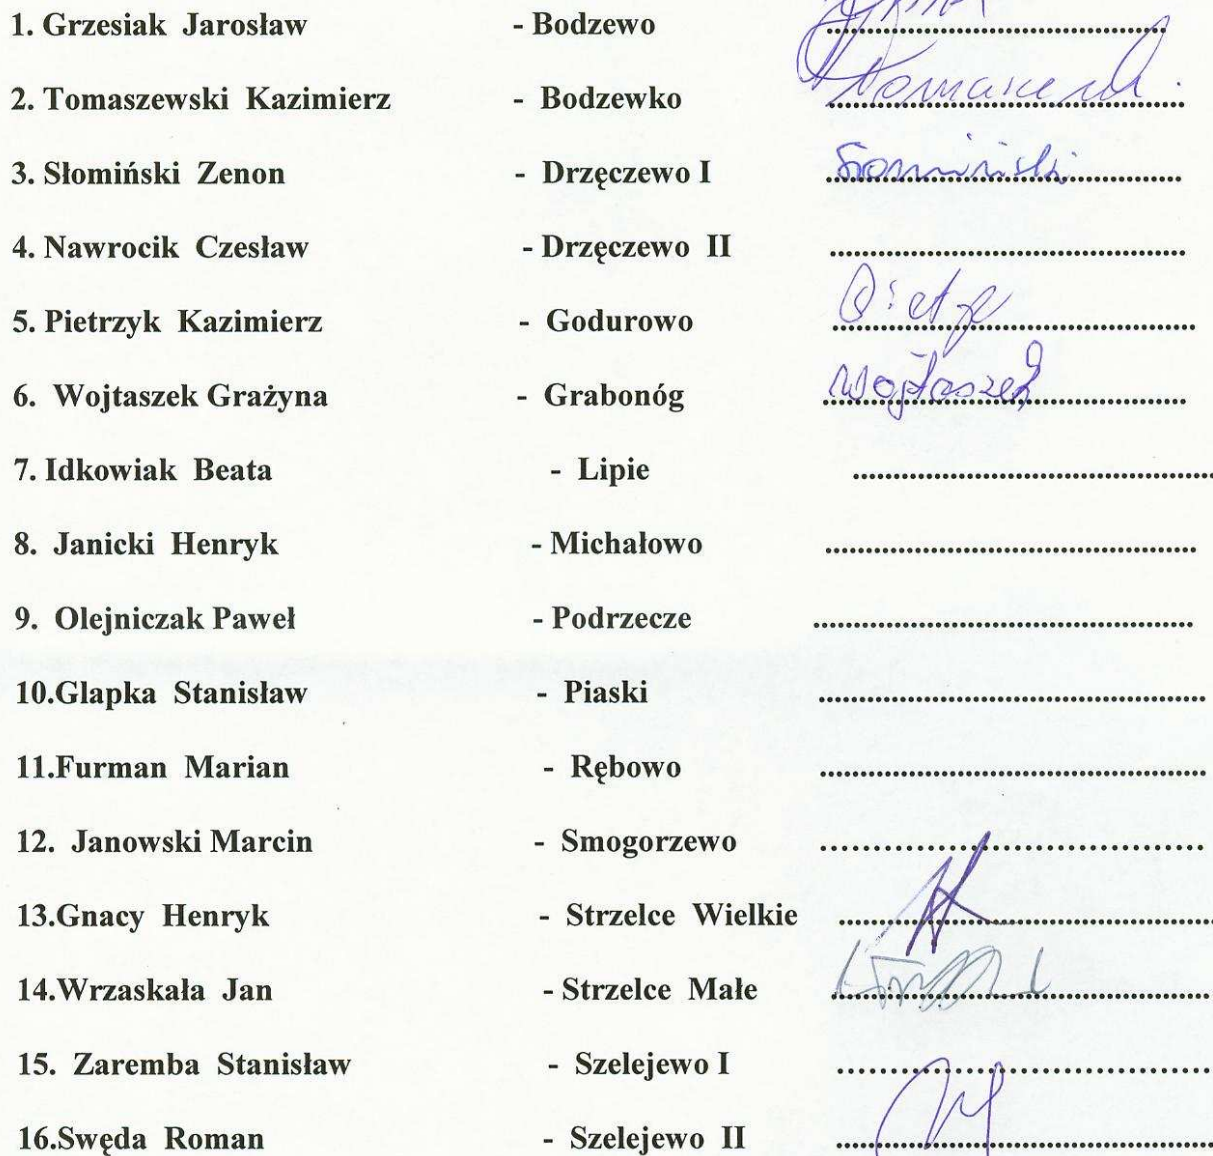 1. Grzesiak Jarosław - Bodzewo ..........................................
2. Tomaszewski Kazimierz - Bodzewko ..........................................
3. Słomiński Zenon - Drzęczewo I Słomiński ..........................................
4. Nawrocik Czesław - Drzęczewo II ..........................................
5. Pietrzyk Kazimierz - Godurowo ..........................................
6. Wojtaszek Grażyna - Grabonóg Wojtaszek ..........................................
7. Idkowiak Beata - Lipie ..........................................
8. Janicki Henryk - Michałowo ..........................................
9. Olejniczak Paweł - Podrzecze ..........................................
10.Glapka Stanisław - Piaski ..........................................
11.Furman Marian - Rębowo ..........................................
12. Janowski Marcin - Smogorzewo ..........................................
13.Gnacy Henryk - Strzelce Wielkie ..........................................
14.Wrzaskała Jan - Strzelce Małe ..........................................
15. Zaremba Stanisław - Szelejewo I ..........................................
16.Swęda Roman - Szelejewo II ..........................................